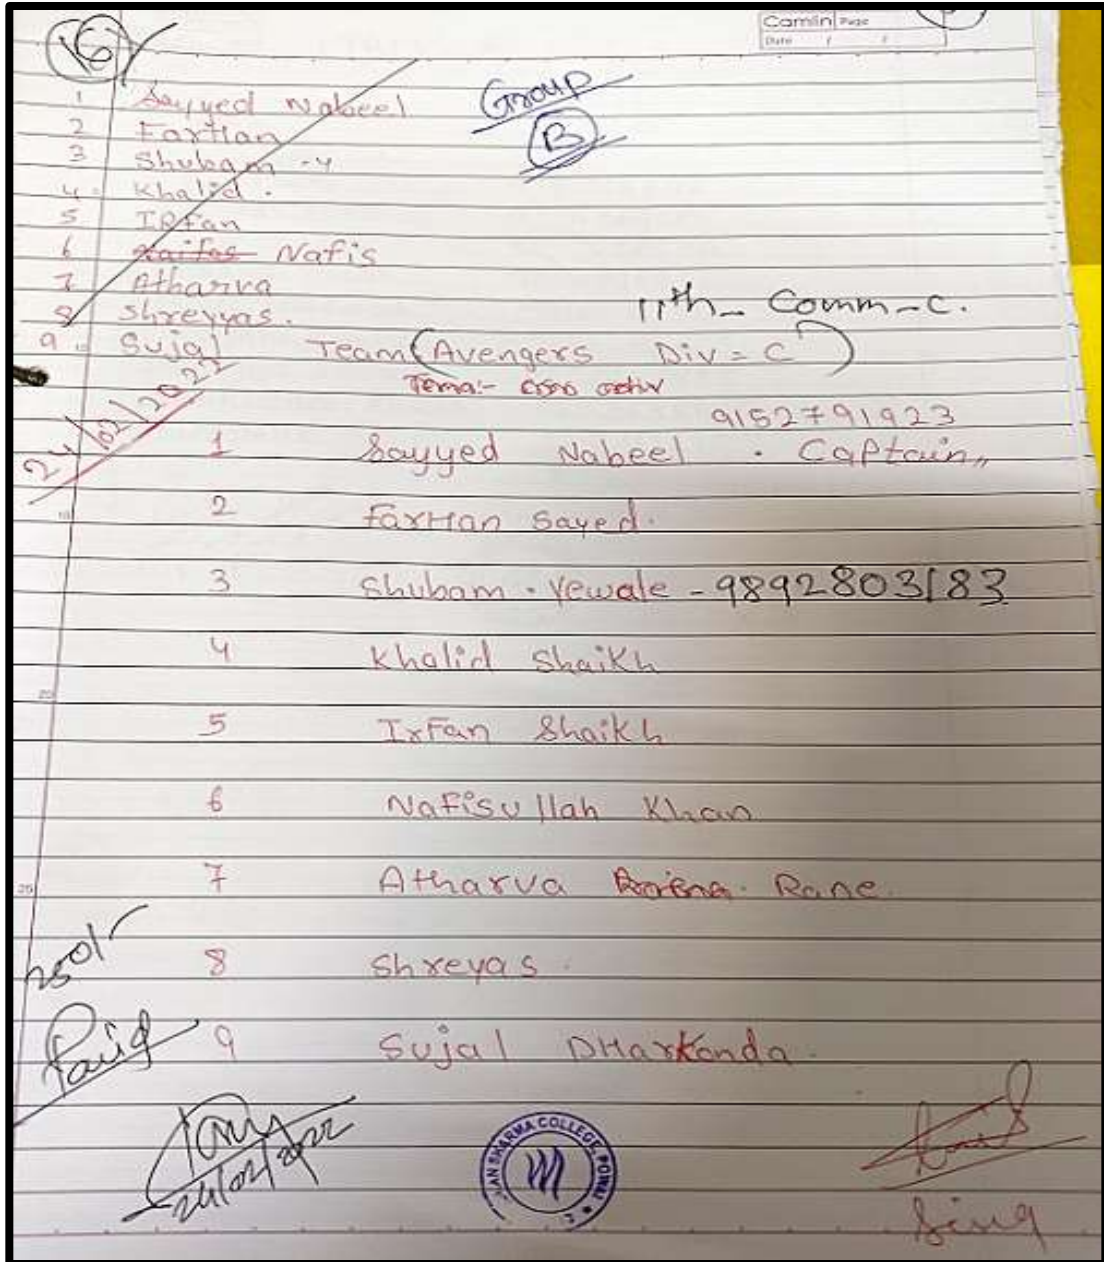 16
Camlin Page
Date / /
Group
B
1 Sayyed Nabeel
2 Farhan
3 Shubam -y
4. Khalid.
5 IRfan
6 Nafis
7 Atharva
8 Shreyyas.
9. Sujal
11th- Comm-C.
Team (Avengers Div = C)
24/02/2022
9152791923
1 Sayyed Nabeel . Captain,,
2 FarHan Sayed.
3 Shubam - Yewale - 9892803183
4 Khalid Shaikh
20
5 IrFan Shaikh
6 NaFisullah Khan
7 Atharva Rane.
25
250/-
8 Shreyas.
Paid
9 Sujal DHarkonda.
24/02/2022
SHARMA COLLEGE, POWAI
Sing